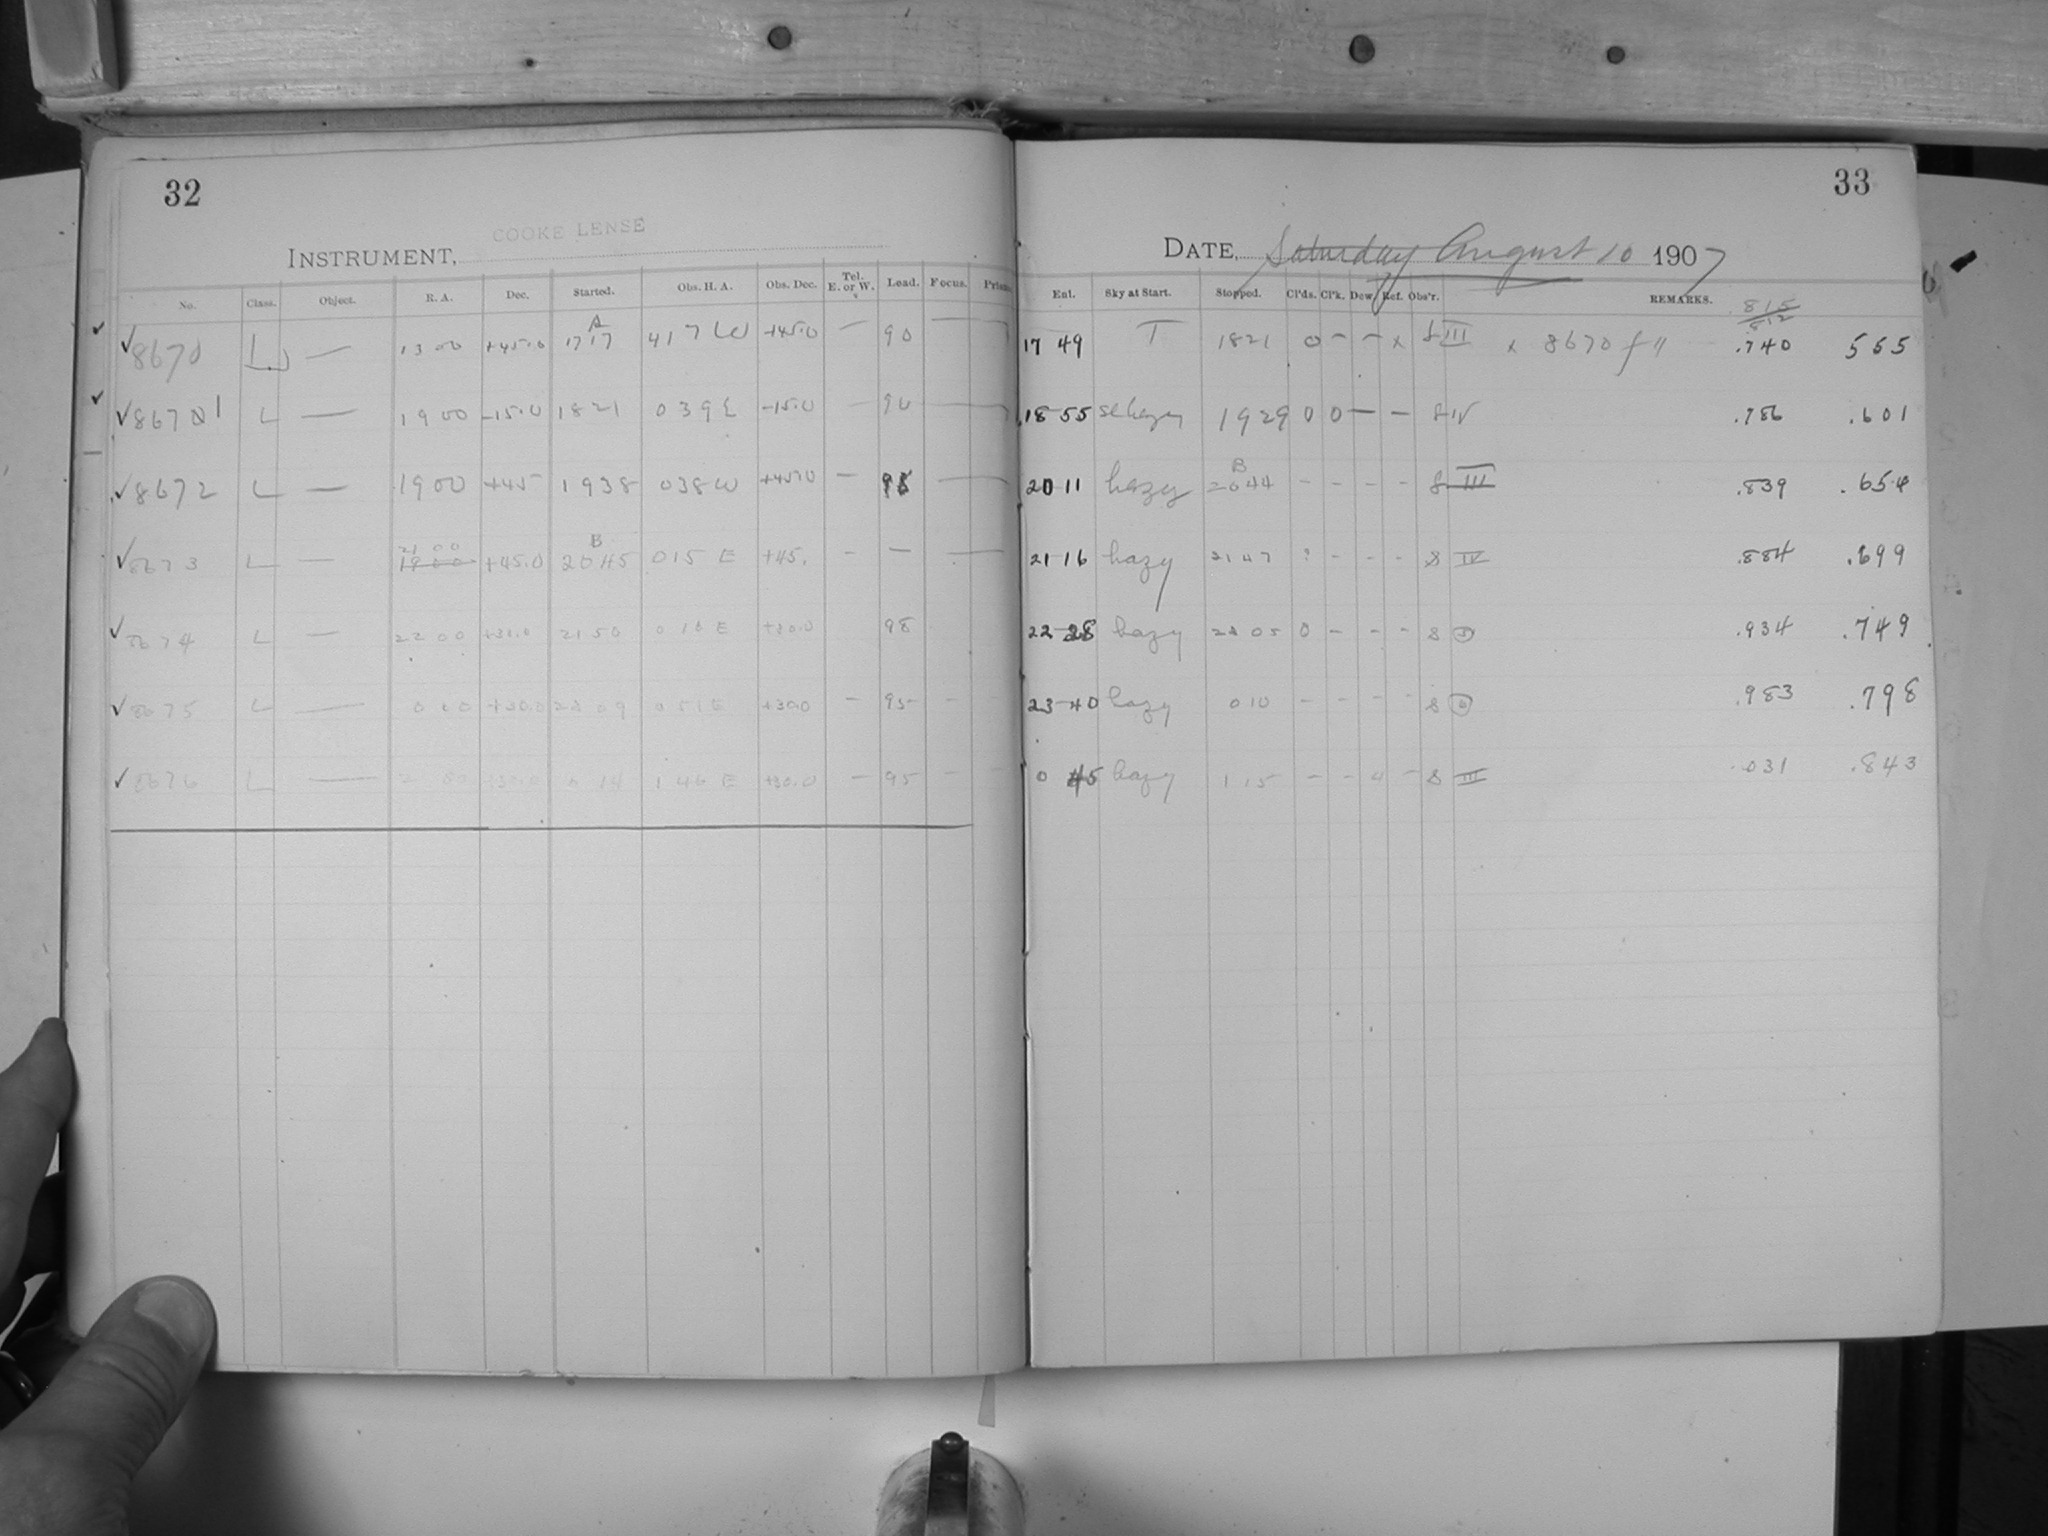 32
COOKE LENSE
INSTRUMENT,
No. Class. Object. R. A. Dec. Started. Obs. H. A. Obs. Dec. Tel. E. or W. Load. Focus.
✓ ✓8670 L — 13 00 +45.0 A 17 17 4 17 W +45.0 — 90 —
✓ ✓8671 L — 19 00 -15.0 18 21 0 39 E -15.0 — 90 —
— ✓8672 L — 19 00 +45 19 38 0 38 W +45.0 — —
✓8673 L — 21 00 +45.0 B 20 45 0 15 E +45. — — —
✓8674 L — 22 00 +30.0 21 50 0 10 E +30.0 98
✓8675 L — 0 00 +30.0 0 51 E +30.0 — 95 —
✓8676 L — +30.0 0 14 1 46 E +30.0 — 95 —
33
DATE, Saturday August 10 1907
Ent. Sky at Start. Stopped. Cl'ds. Cl'k. Dew. Ref. Obs'r. REMARKS.
815
812
17 49 T 18 21 0 — — x III x 8670 .740 555
18 55 19 29 0 0 — — IV .786 .601
20 11 hazy B 20 44 - - - - III .839 .654
21 16 hazy 21 47 ? - - - 8 IV .884 .699
22 28 hazy 0 - - - 8 .934 .749
23 40 hazy 0 10 - - - - 8 .983 .798
0 45 hazy 1 15 - - - 8 III .031 .843